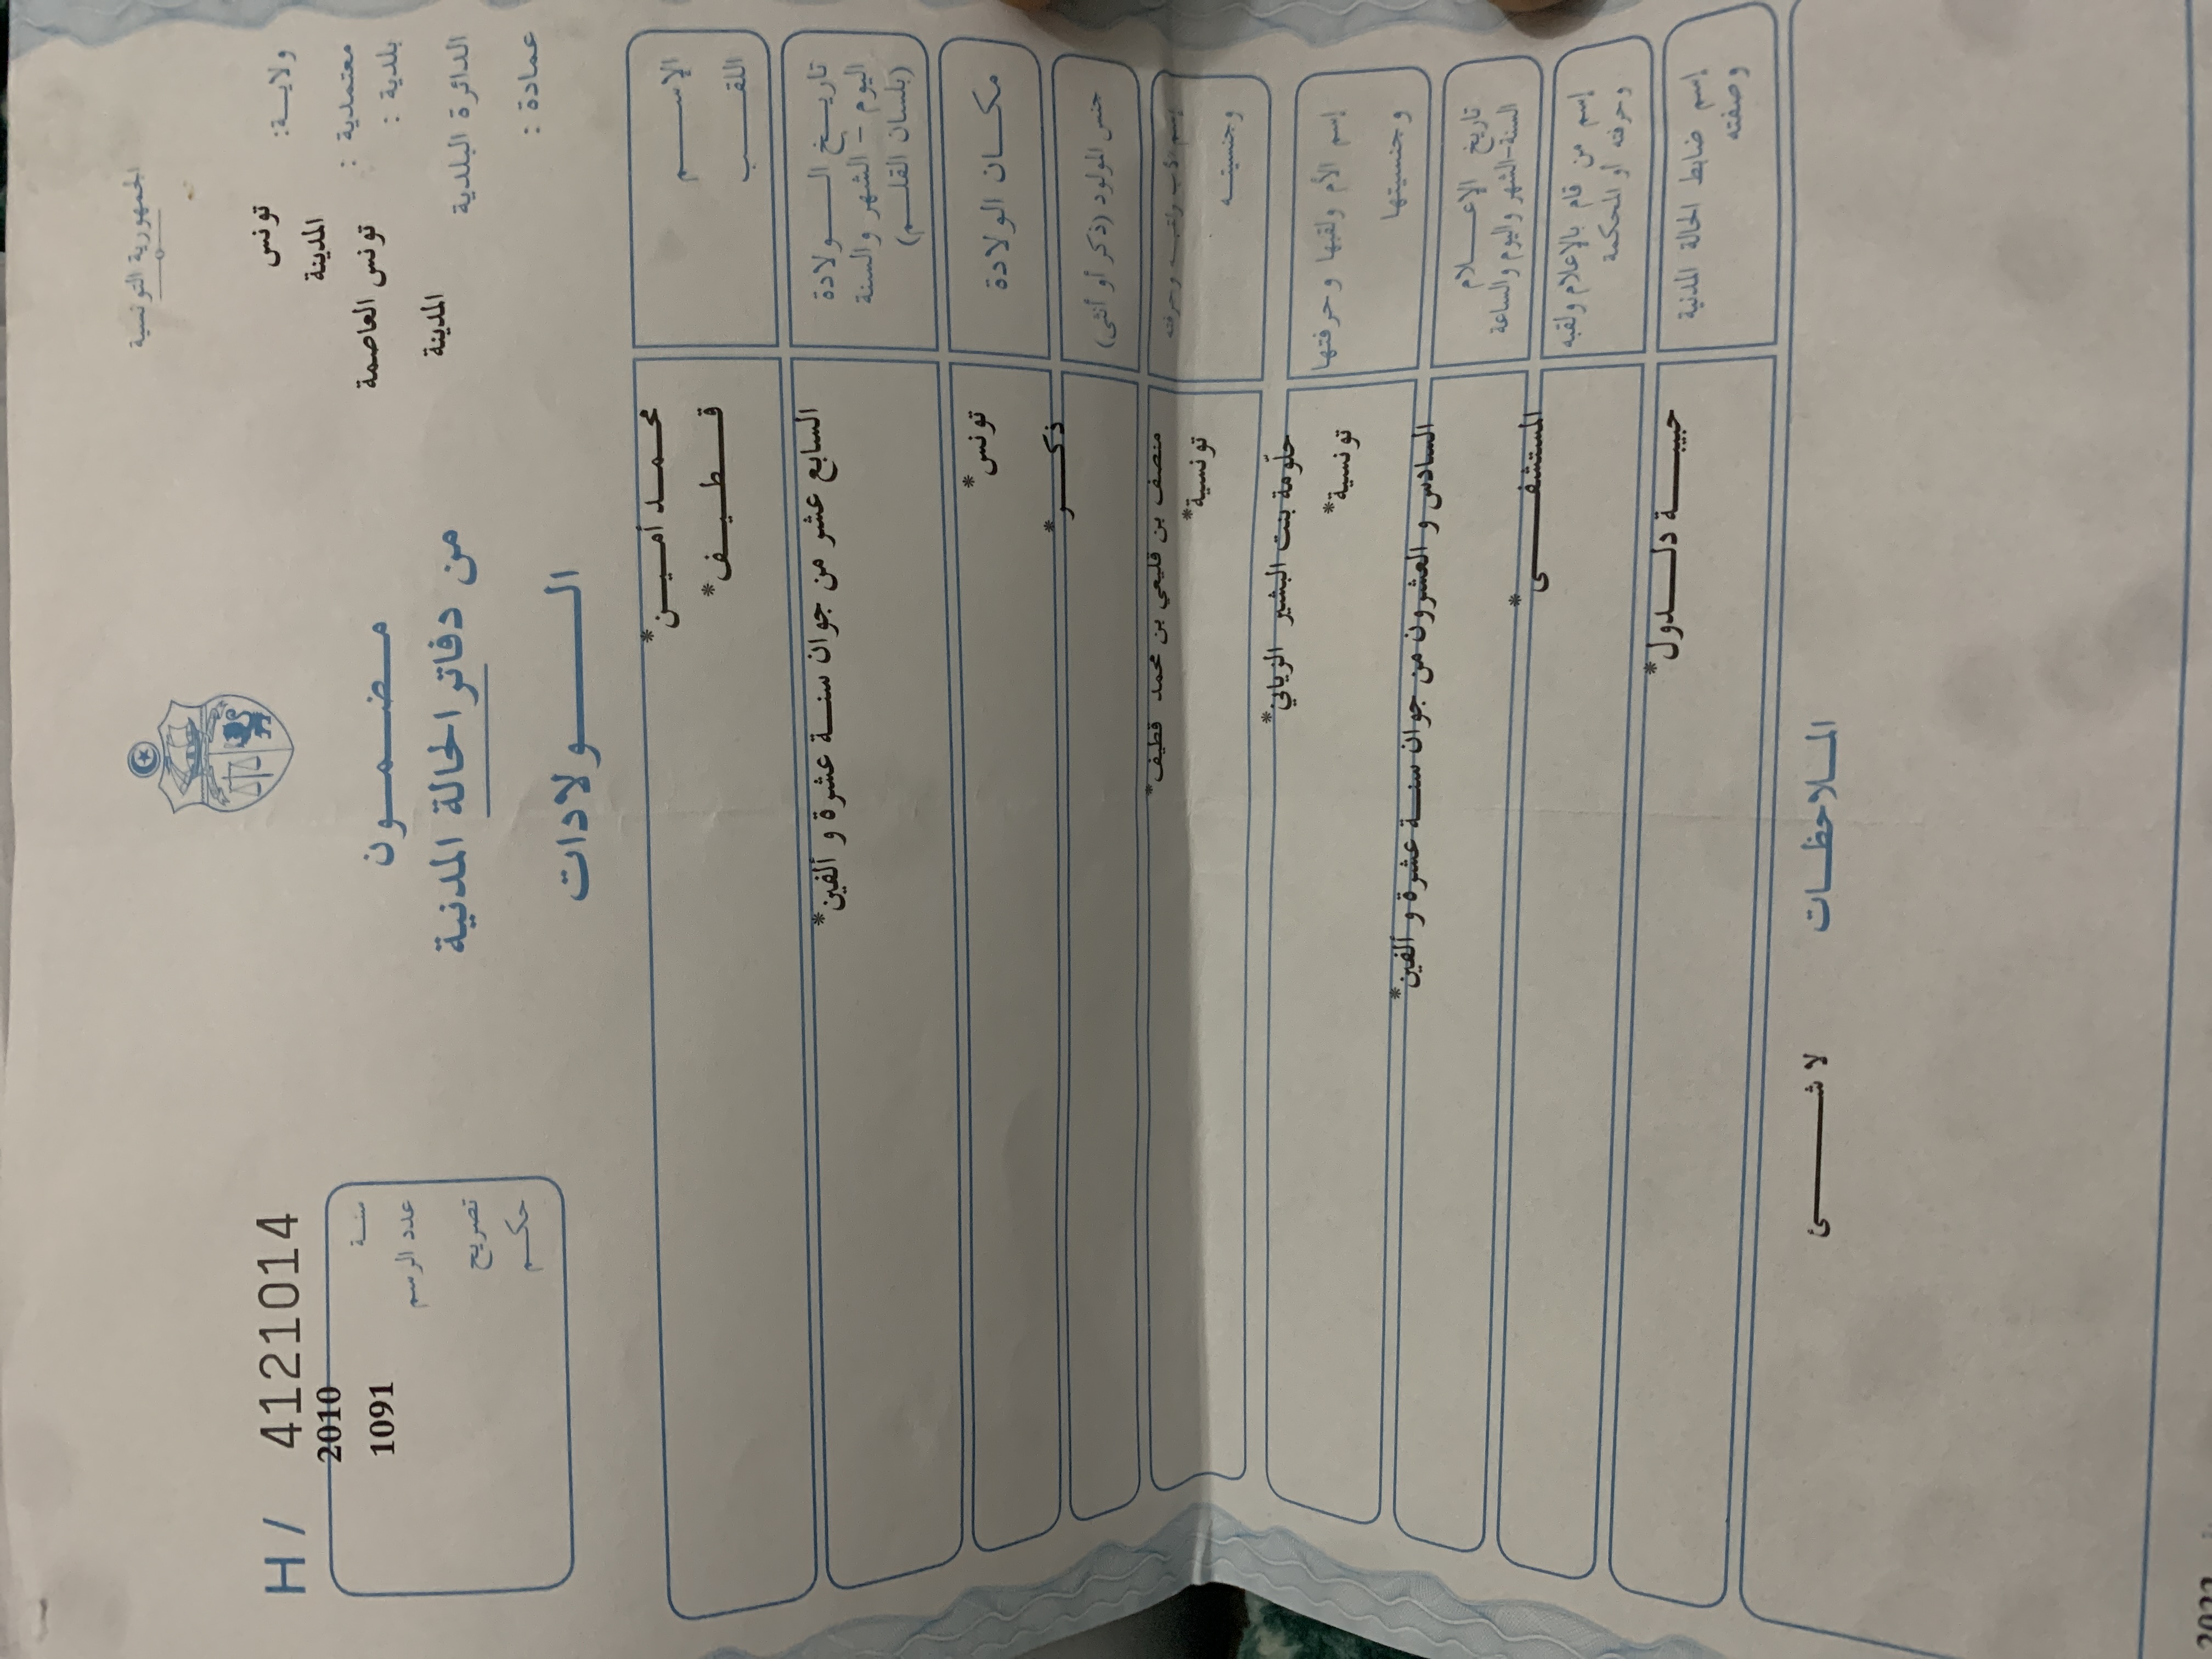 الجمهورية التونسية
H / 4121014
ولاية: تونس
معتمدية : المدينة
بلدية : تونس العاصمة
الدائرة البلدية
المدينة
عمادة :
مضمون
من دفاتر الحالة المدنية
الولادات
سنة 2010
عدد الرسم 1091
تصريح
حكم
الاسم محمد أمين*
اللقب قطيف*
تاريخ الولادة
اليوم - الشهر والسنة
(بلسان القلم)
السابع عشر من جوان سنة عشرة و ألفين*
مكان الولادة تونس*
جنس المولود (ذكر أو أنثى) ذكر*
إسم الأب ولقبه وحرفته
منصف بن قليعي بن محمد قطيف*
وجنسيته تونسية*
إسم الأم ولقبها وحرفتها
حلّومة بنت البشير الزياني*
وجنسيتها تونسية*
تاريخ الإعلام
السنة-الشهر واليوم والساعة
السادس و العشرون من جوان سنة عشرة و ألفين*
إسم من قام بالإعلام ولقبه
وحرفته أو المحكمة
المستشفى*
إسم ضابط الحالة المدنية
وصفته
حبيبة دلدول*
الملاحظات
لا شئ